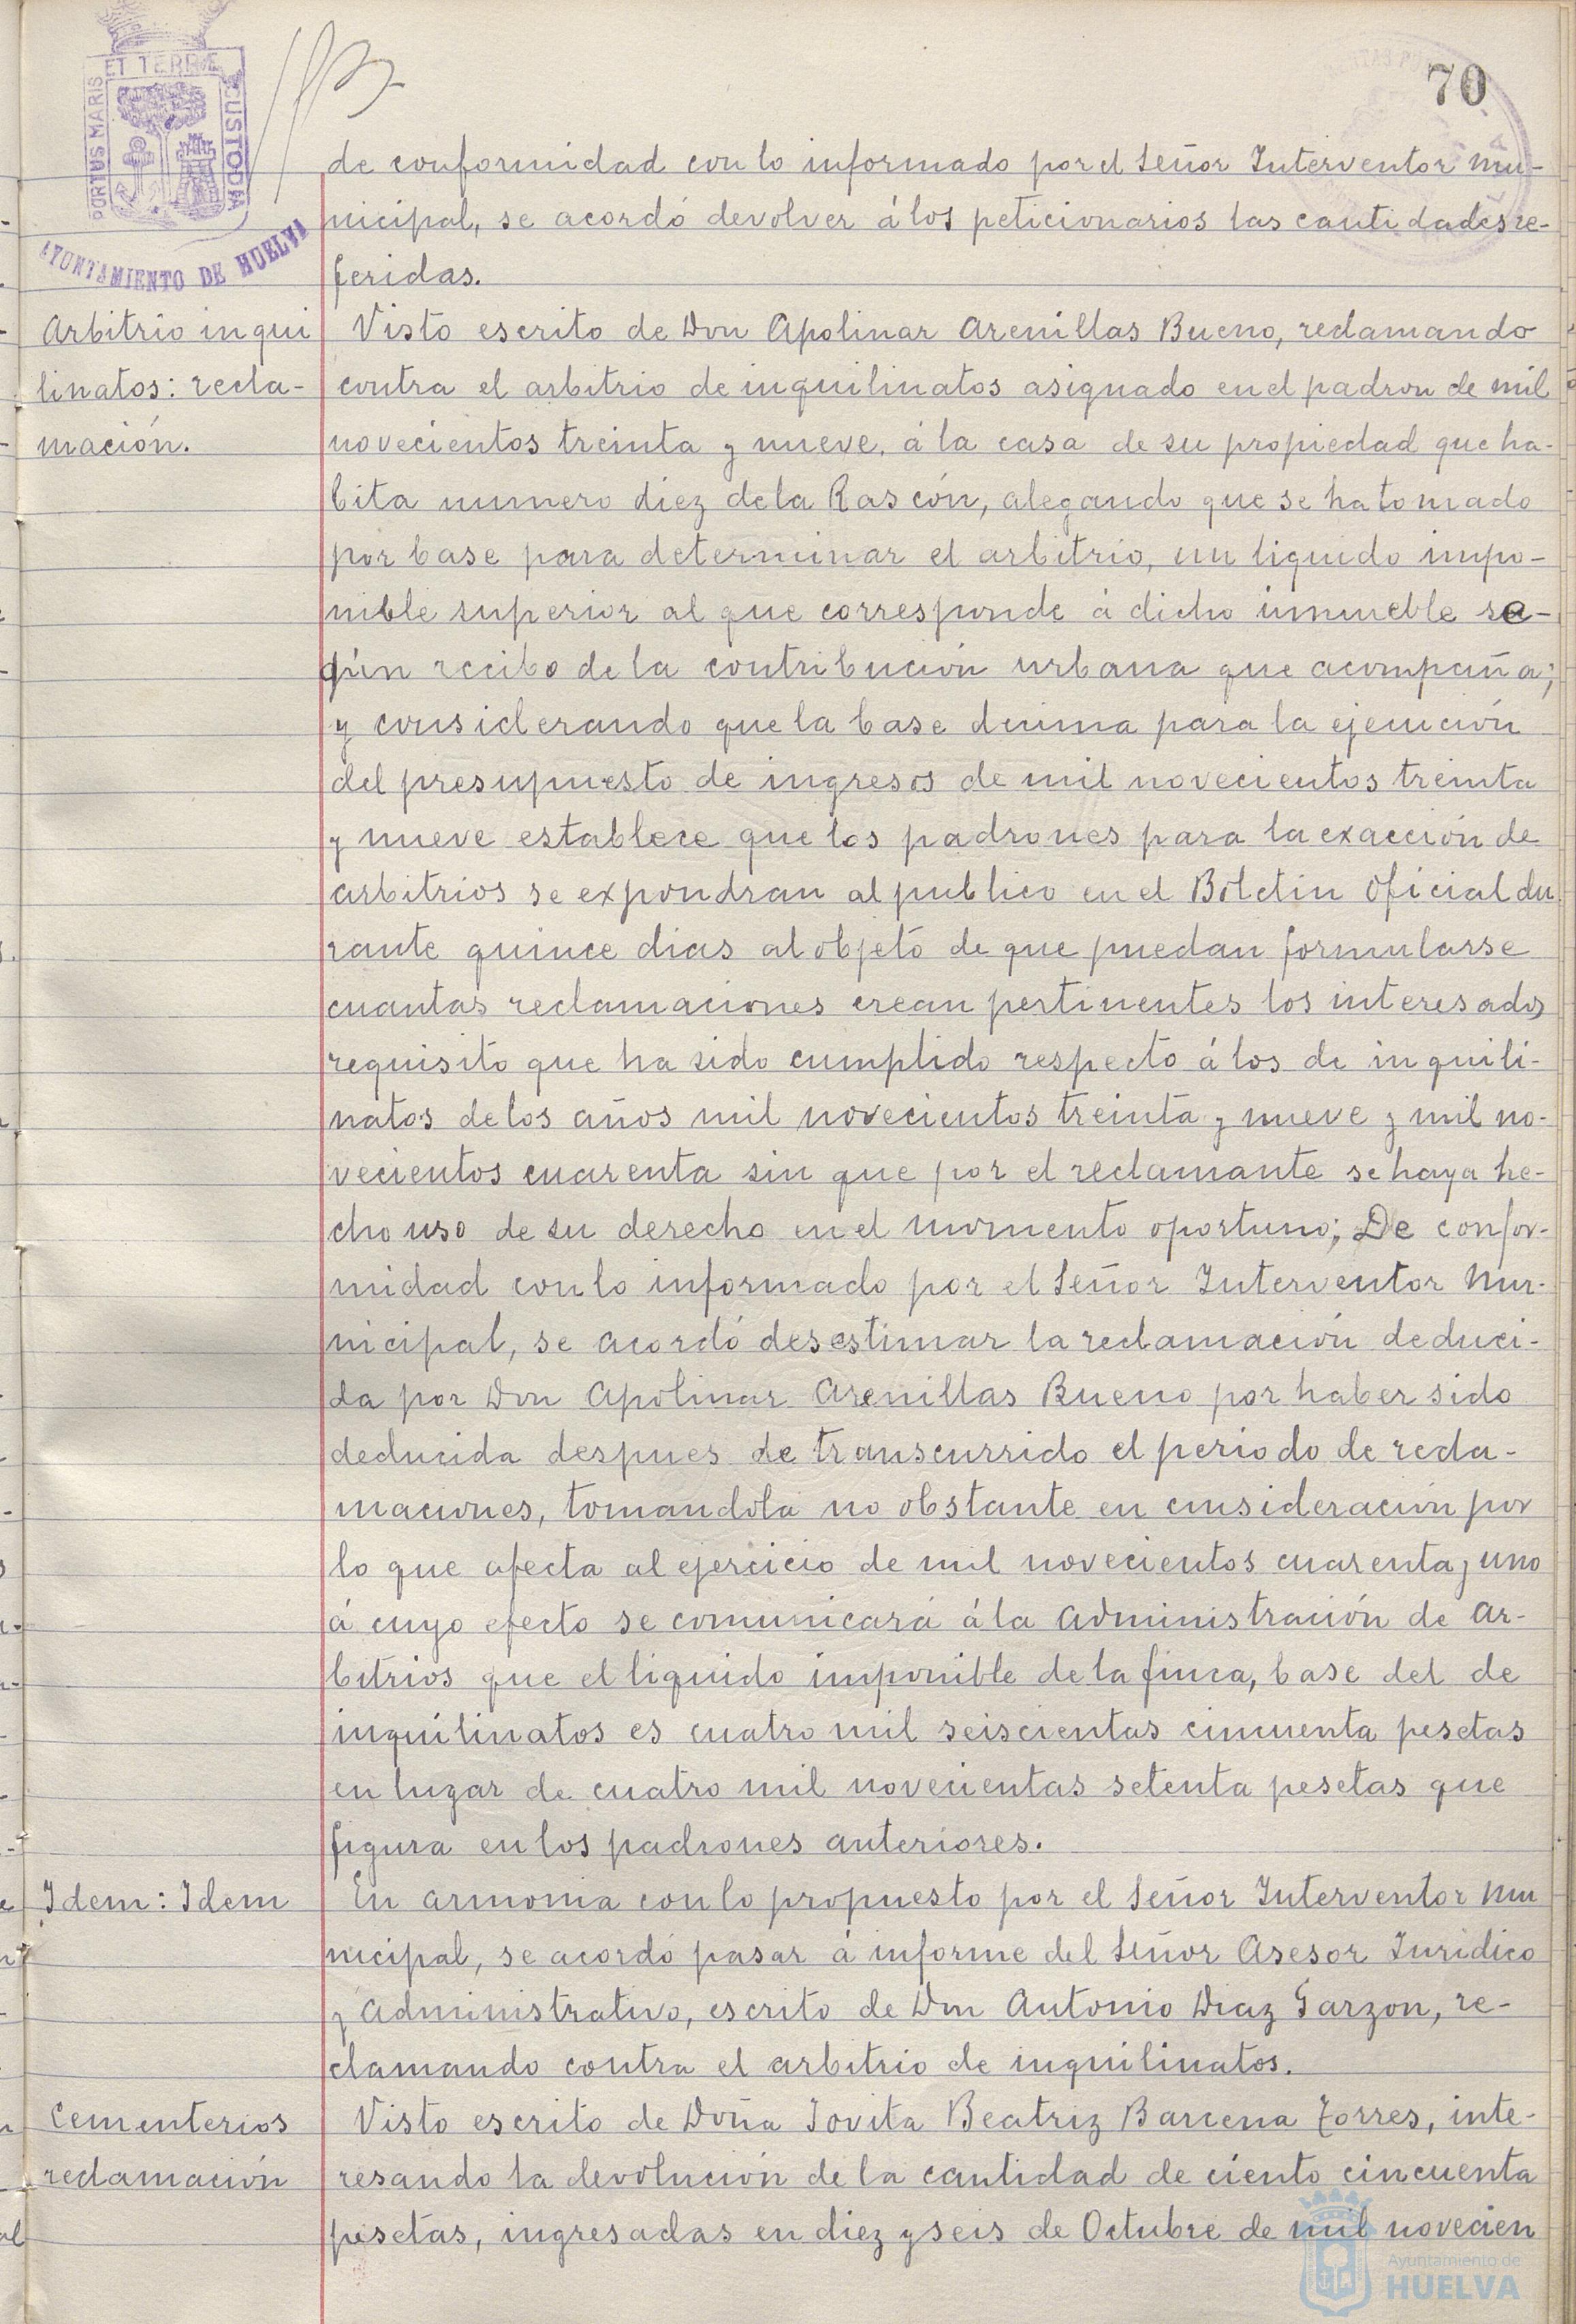 70
PORTUS MARIS ET TERRÆ CUSTODIA
AYUNTAMIENTO DE HUELVA
de conformidad con lo informado por el Señor Interventor Mu-
nicipal, se acordó devolver á los peticionarios las cantidades re-
feridas.
Arbitrio inqui
linatos: recla-
mación.
Visto escrito de Don Apolinar Arenillas Bueno, reclamando
contra el arbitrio de inquilinatos asignado en el padron de mil
novecientos treinta y nueve, á la casa de su propiedad que ha-
bita numero diez de la Rascón, alegando que se ha tomado
por base para determinar el arbitrio, un liquido impo-
nible superior al que corresponde á dicho inmueble se-
gún recibo de la contribución urbana que acompaña;
y considerando que la base decima para la ejecución
del presupuesto de ingresos de mil novecientos treinta
y nueve establece que los padrones para la exacción de
arbitrios se expondran al publico en el Boletin Oficial du
rante quince dias al objeto de que puedan formularse
cuantas reclamaciones crean pertinentes los interesados
requisito que ha sido cumplido respecto á los de inquili-
natos de los años mil novecientos treinta y nueve y mil no-
vecientos cuarenta sin que por el reclamante se haya he-
cho uso de su derecho en el momento oportuno; De confor-
midad con lo informado por el Señor Interventor Mu-
nicipal, se acordó desestimar la reclamación deduci-
da por Don Apolinar Arenillas Bueno por haber sido
deducida despues de transcurrido el periodo de recla-
maciones, tomandola no obstante en consideración por
lo que afecta al ejercicio de mil novecientos cuarenta y uno
á cuyo efecto se comunicará á la Administración de Ar-
bitrios que el liquido imponible de la finca, base del de
inquilinatos es cuatro mil seiscientas cincuenta pesetas
en lugar de cuatro mil novecientas setenta pesetas que
figura en los padrones anteriores.
Idem: Idem
En armonia con lo propuesto por el Señor Interventor Mu
nicipal, se acordó pasar á informe del Señor Asesor Juridico
y Administrativo, escrito de Don Antonio Diaz Garzon, re-
clamando contra el arbitrio de inquilinatos.
Cementerios
reclamación
Visto escrito de Doña Jovita Beatriz Barcena Torres, inte-
resando la devolución de la cantidad de ciento cincuenta
pesetas, ingresadas en diez y seis de Octubre de mil novecien
Ayuntamiento de
HUELVA